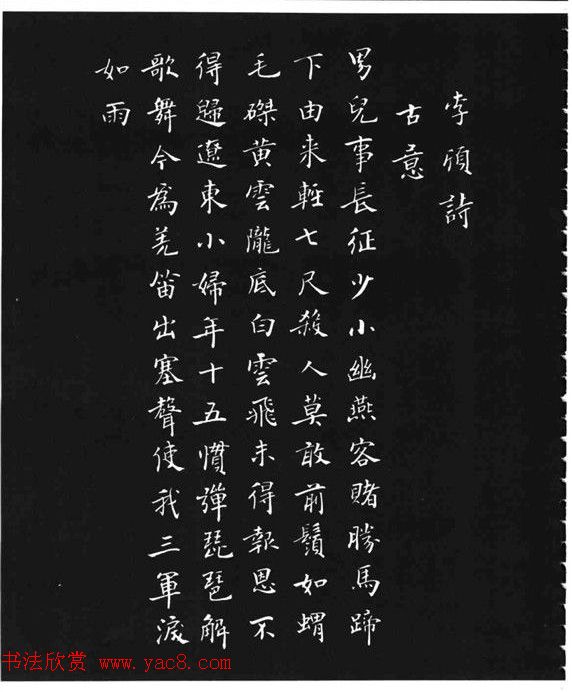 李頎詩
古意
男兒事長征少小幽燕客賭勝馬蹄
下由来輕七尺殺人莫敢前鬚如蝟
毛磔黄雲隴底白雲飛未得報恩不
得歸遼東小婦年十五慣彈琵琶解
歌舞今為羌笛出塞聲使我三軍淚
如雨
书法欣赏 www.yac8.com